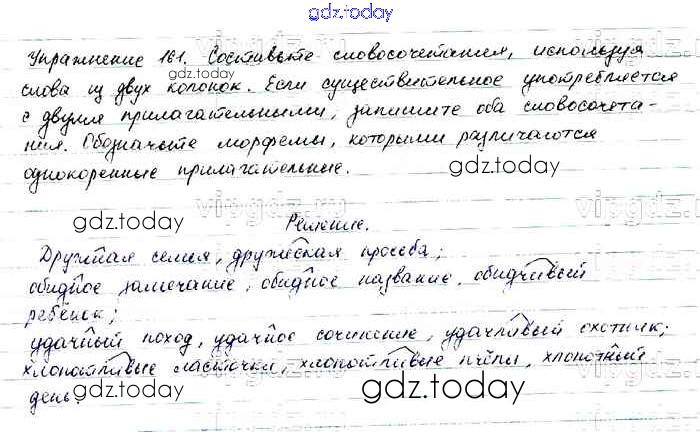 gdz.today
Упражнение 161. Составьте словосочетания, используя
слова из двух колонок. Если существительное употребляется
с двумя прилагательными, запишите оба словосочета-
ния. Обозначьте морфемы, которыми различаются
однокоренные прилагательные.
gdz.today
gdz.today
Решение.
Дружная семья, дружеская просьба;
gdz.today
обидное замечание, обидное название, обидчивый
ребёнок;
удачный поход, удачное сочинение, удачливый охотник;
хлопотливые ласточки, хлопотливые пчёлы, хлопотный
день.
gdz.today